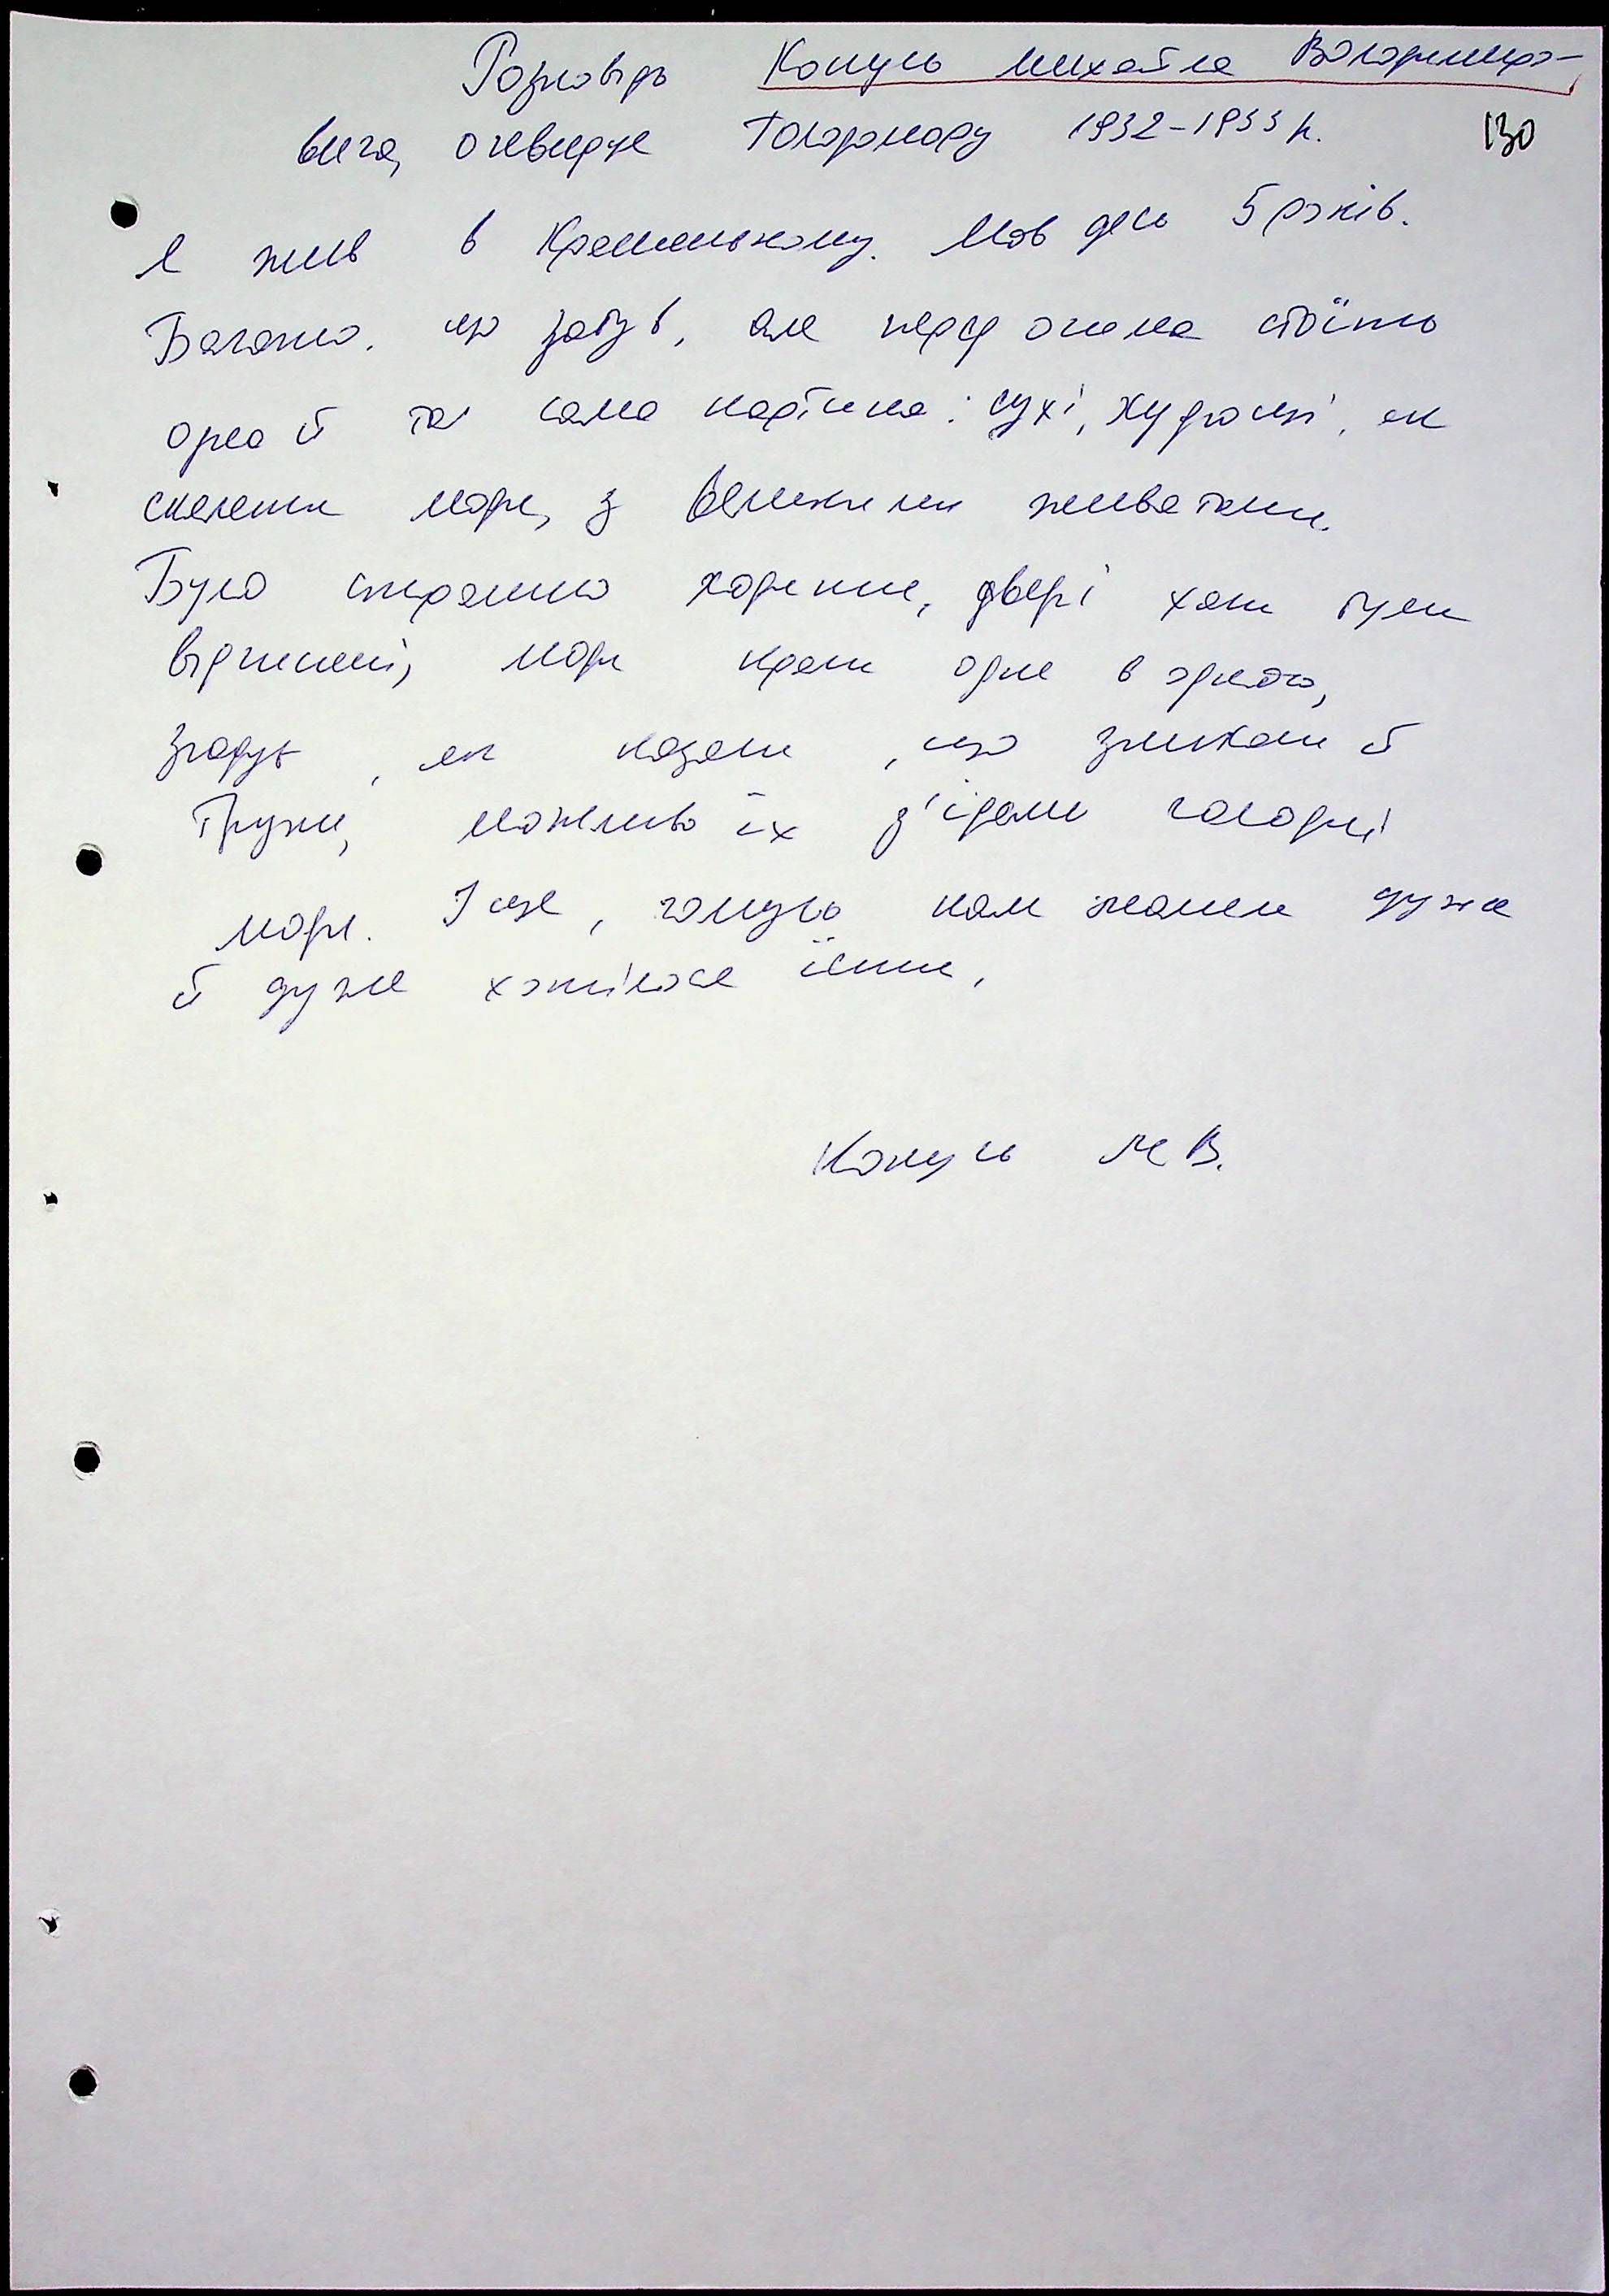 Розповідь Копуль Михайла Володимиро-
вича, очевидця Голодомору 1932-1933 р. 130
Я жив в Кремінському. Мав десь 5 років.
Багато що забув, але перед очима стоїть
одна й та сама картина: сухі, худющі, як
скелети люди, з великими животами.
Було страшно ходити, двері хат були
відчинені, люди крали одне в одного,
згадую, як казали, що зникали й
трупи, можливо їх з'їдали голодні
люди. І ще, чомусь нам дуже
й дуже хотілося їсти.
Копуль М В.